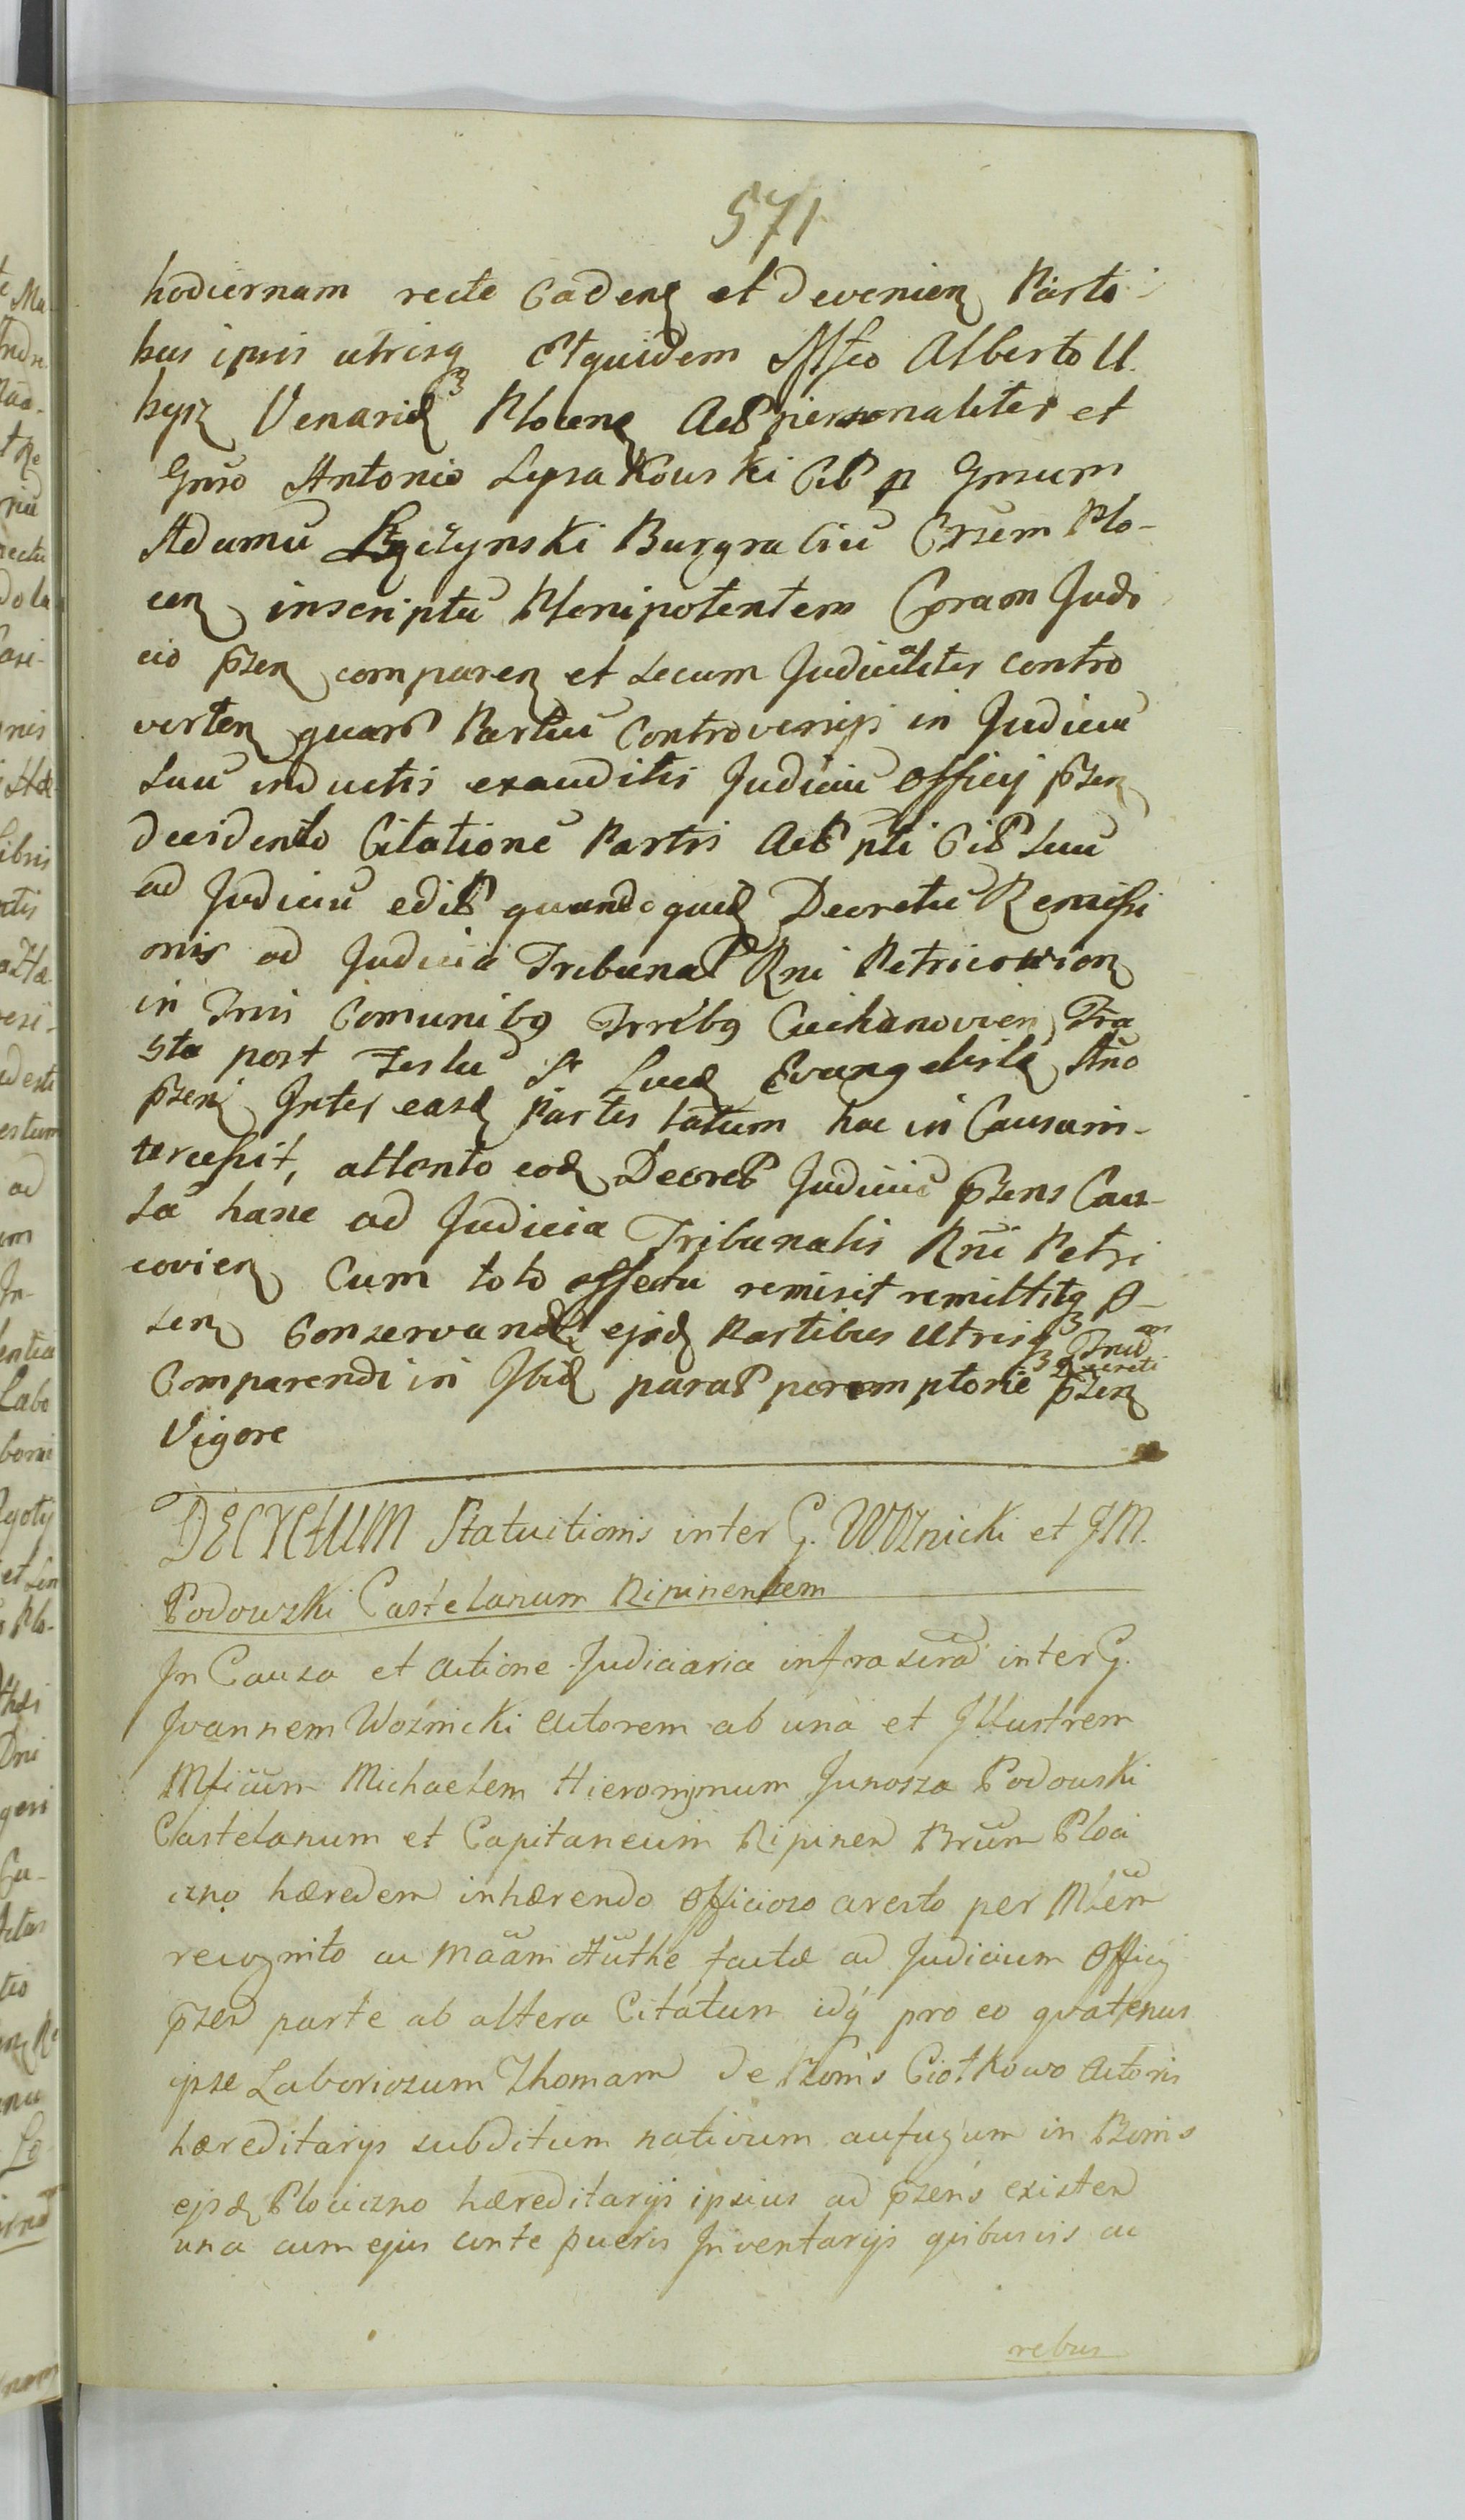 571
hodiernam recte Cadenȝ et devenienȝ Parti
bus ipsis utrisqȝ Et quidem Mfco Alberto U
Venarid Plocenȝ Act personaliter et
Gnso Antonio Lysakowski Cit p Gnsum
Adamū Łyczynski Burgrabiū Crsem Plo-
cenȝ inscriptū Plenipotentem Coram Judi
cio pszenȝ comparenȝ et secum Judicialiter contro
vertenȝ quarū Partiū Controversijs in Judiciū
suū inductis exauditis Judiciū Officij pszenȝ
decidendo Citationē Partis Act pti Cit suū
ad Judiciū edit quandoquid Decretū Remissi
onis ad Judicia Tribunal Rni Petricovien
in Trnis Comunibȝ Trribȝ Ciechanovien Fra
sta post Festū S. Lucæ Evangelistæ Ano
pszenȝ Inter easd Partes latum hac in Causa in-
tercessit, attento eod Decret Judiciū pszens Cau-
sā hanc ad Judicia Tribunalis Rni Petri
covienȝ Cum toto effectu remisit remittitqȝ p-
senȝ Conservand ejsd Partibus Utrisqȝ Trnū
Comparendi in Ibid parat peremptorie Decreti pszenȝ
Vigore
DECRETUM Statuitionis inter G. Woznicki et JM.
Podowski Castelanum Ripinensem
In Causa et actione Judiciaria infrascrad inter G.
Joannem Woźnicki Actorem ab unā et Illustrem
Mficum Michaelem Hieronÿmum Junosza Podouski
Castelanum et Capitaneum Ripinen Brum Ploci
czno hæredem inhærendo Officioso aresto per Mlem
recognito ac Maām Authe factæ ad Judicium Officij
pszen parte ab altera Citatum idq́ pro eo qvatenus
ipse Laboriosum Thomam de Bonis Ciołkowo Actoris
hæreditarijs subditum nativum aufugum in Bonis
ejsdȝ Plociczno hæreditarijs ipsius ad pszens existen
una cum ejus conte pueris Inventarijs quibusvis ac
rebus